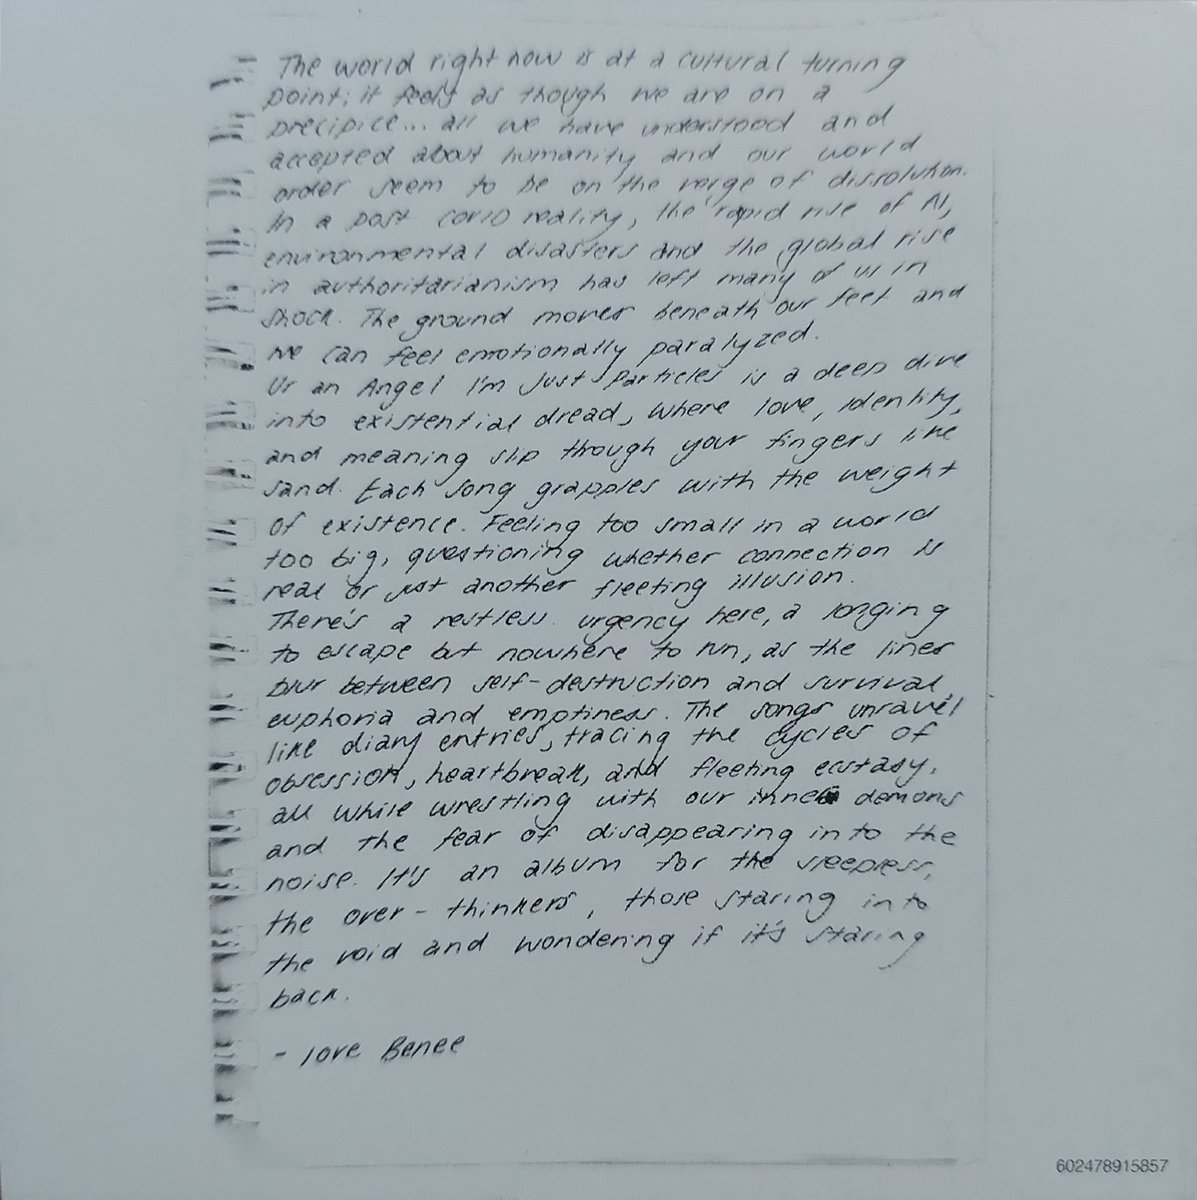 The world right now is at a cultural turning
point; it feels as though we are on a
precipice... all we have understood and
accepted about humanity and our world
order seem to be on the verge of dissolution.
In a post covid reality, the rapid rise of AI,
environmental disasters and the global rise
in authoritarianism has left many of us in
shock. The ground moves beneath our feet and
we can feel emotionally paralyzed.
Ur an Angel I'm Just Particles is a deep dive
into existential dread, where love, identity,
and meaning slip though your fingers like
sand. Each song grapples with the weight
of existence. Feeling too small in a world
too big, questioning whether connection is
real or just another fleeting illusion.
There's a restless urgency here, a longing
to escape but nowhere to run, as the lines
blur between self-destruction and survival,
euphoria and emptiness. The songs unravel
like diary entries, tracing the cycles of
obsession, heartbreak, and fleeting ecstasy,
all while wrestling with our inner demons
and the fear of disappearing into the
noise. It's an album for the sleepless,
the over-thinkers, those staring into
the void and wondering if it's staring
back.
- love Benee
602478915857